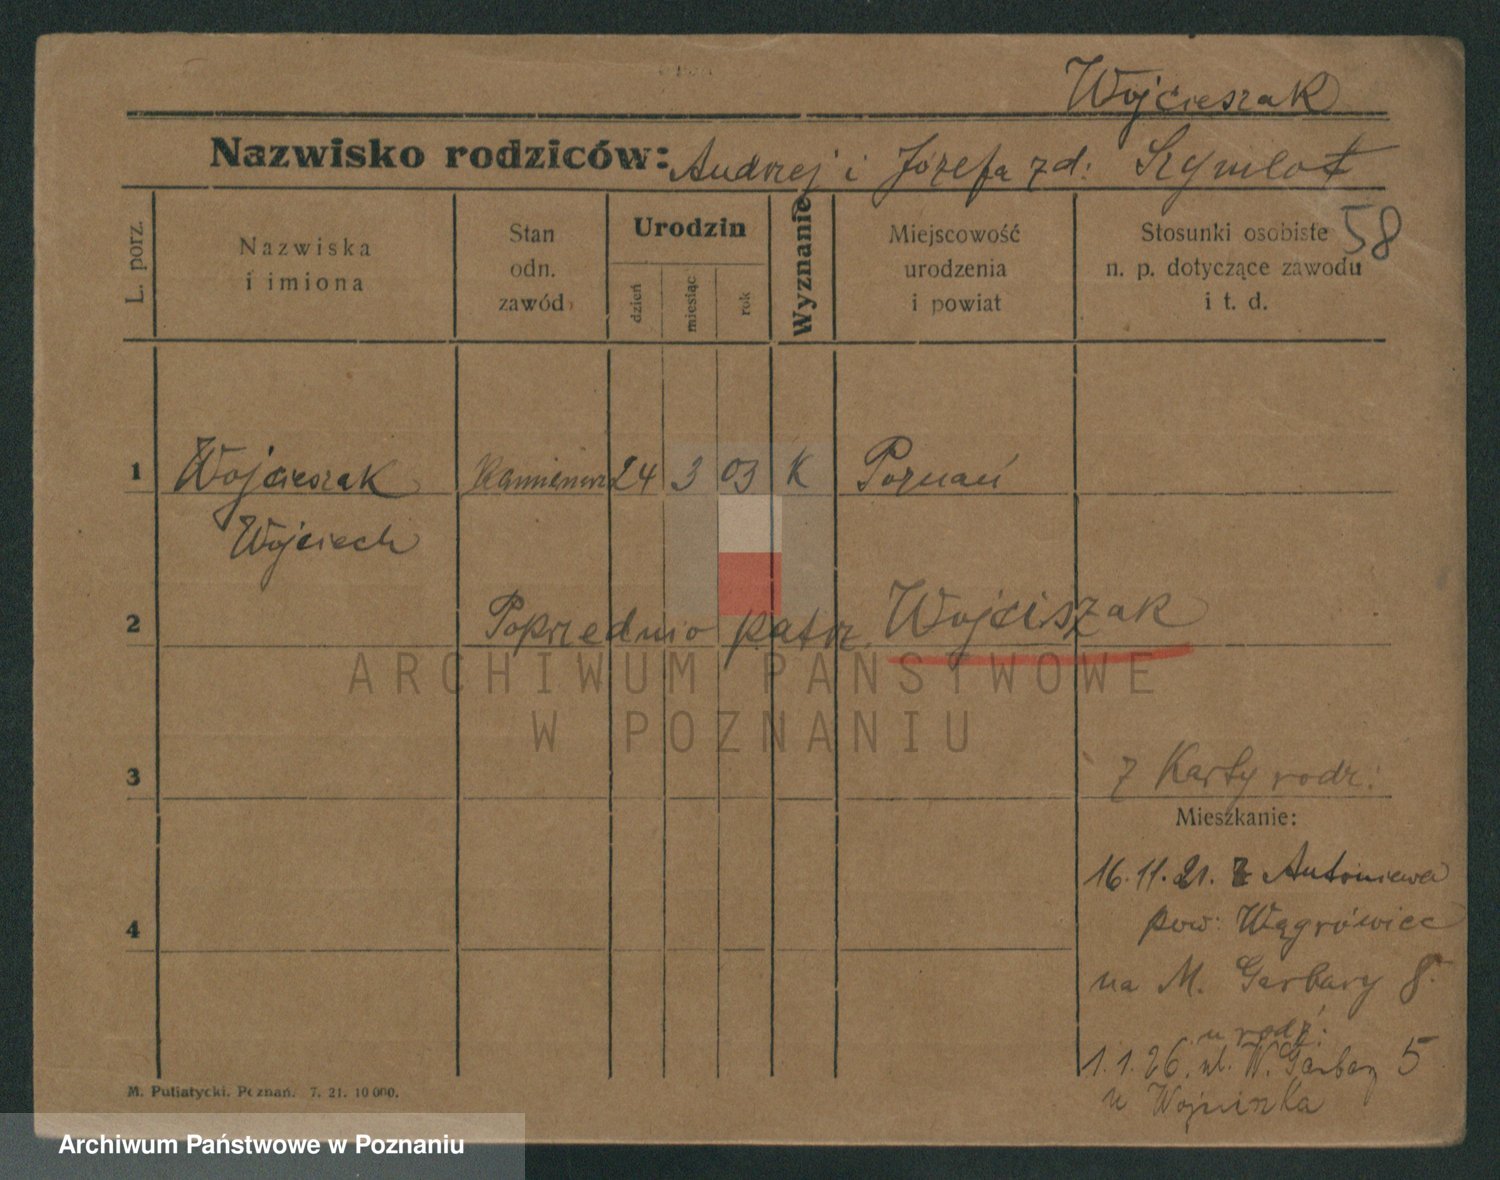 Wojcieszak
Nazwisko rodziców: Andrzej i Józefa zd:
58
L. porz.
Nazwiska
i imiona
Stan
odn.
zawód
Urodzin
dzień
miesiąc
rok
Wyznanie
Miejscowość
urodzenia
i powiat
Stosunki osobiste
n. p. dotyczące zawodu
i t. d.
1 Wojcieszak 24 3 03 K Poznań
Wojciech
2 Poprzednio patrz Wojciszak
3 z Karty rodz:
Mieszkanie:
16.11.21. z Antoniewa
4 pow: Wągrówiec
na M. Garbary 8.
u rodz:
1.1.26. ul. W. Garbary 5
u
M. Putiatycki. Poznań. 7. 21. 10 000.
ARCHIWUM PAŃSTWOWE
W POZNANIU
Archiwum Państwowe w Poznaniu